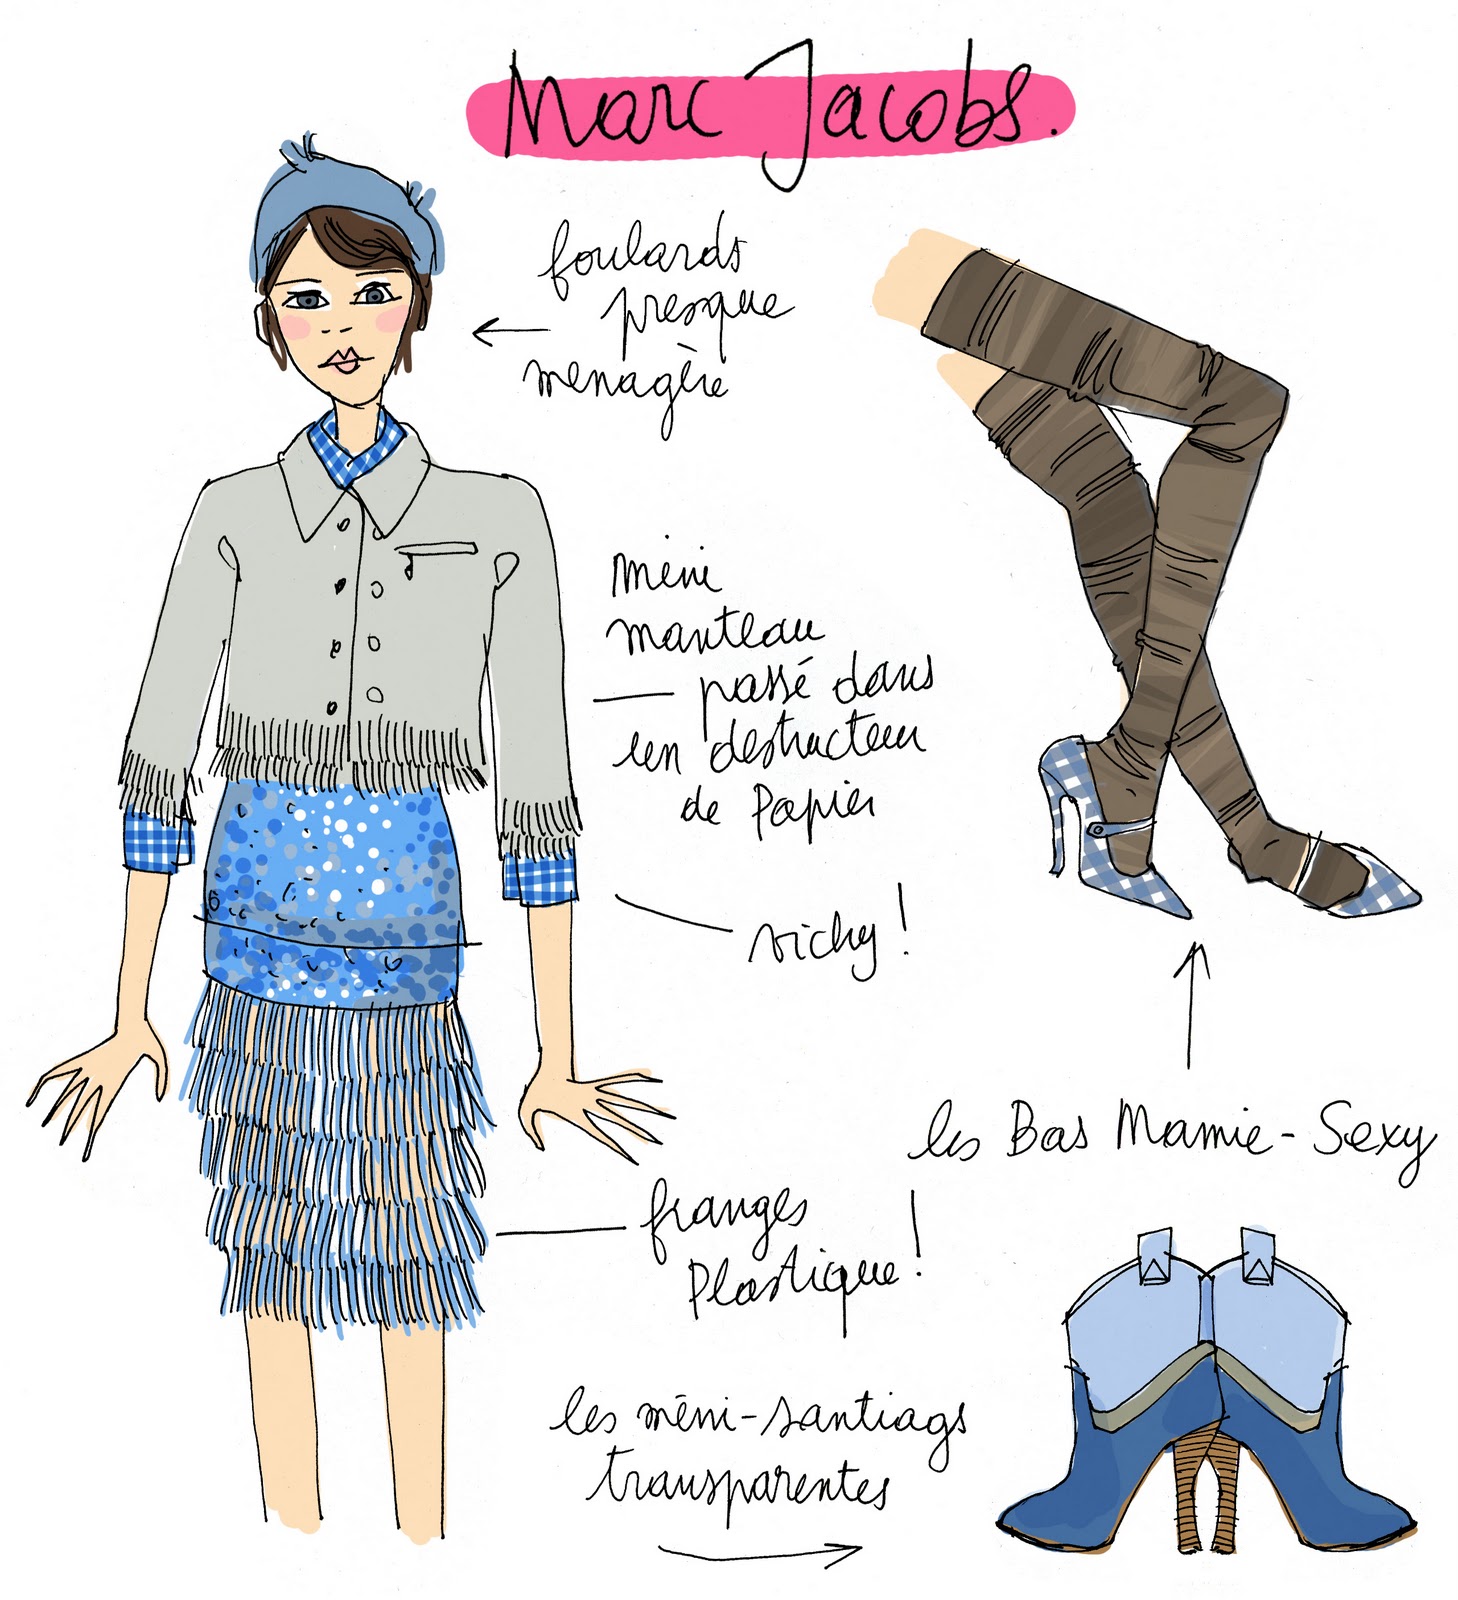 Marc Jacobs.
foulards
presque
menagère
mini
manteau
passé dans
un destructeur
de Papier
vichy !
les Bas Mamie-Sexy
franges
Plastique !
les mini-santiags
transparentes